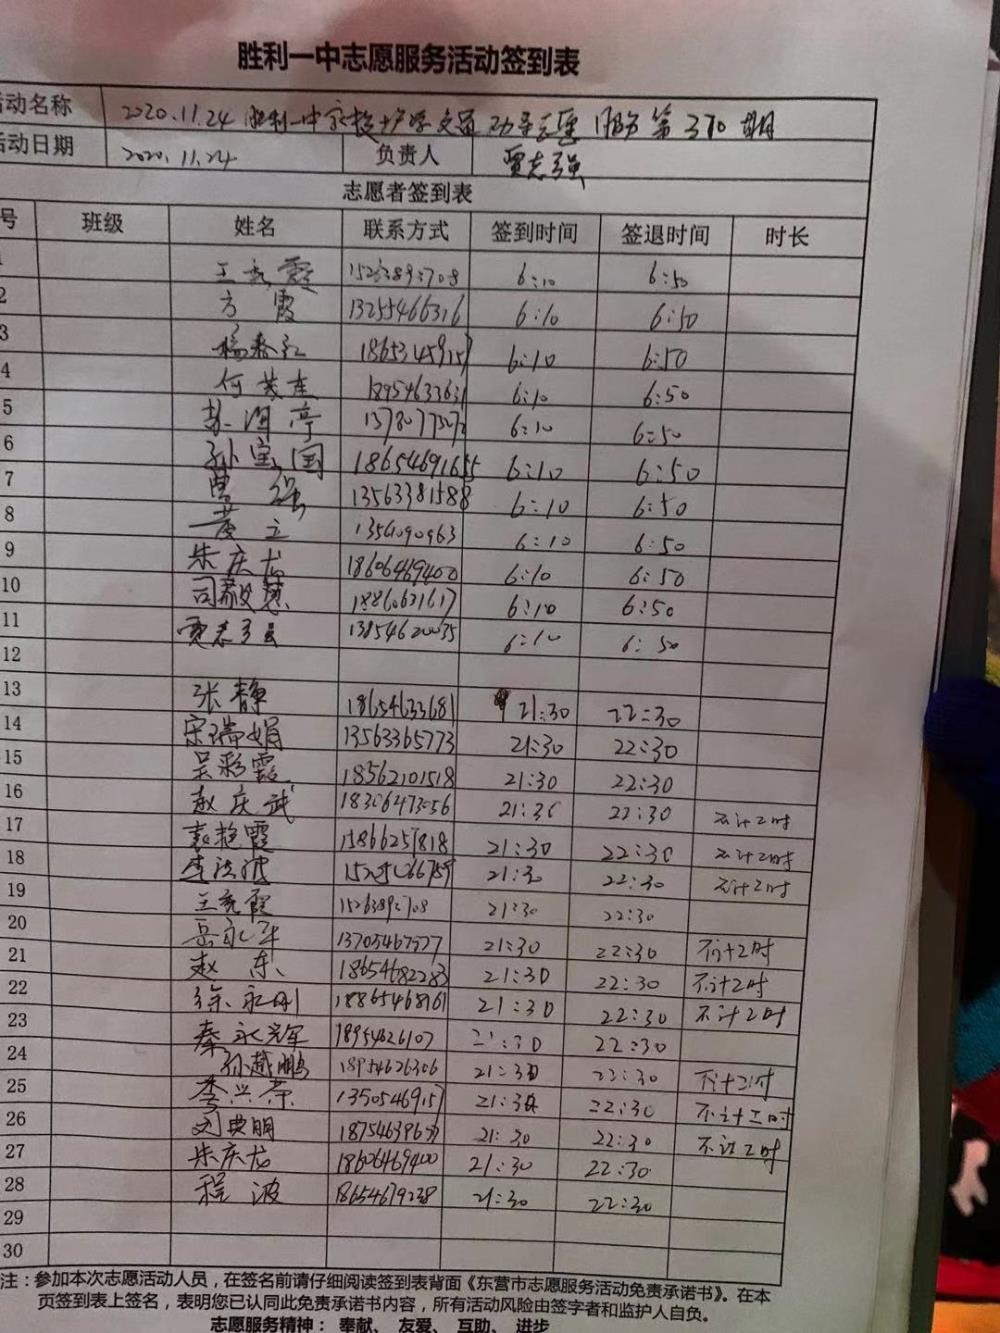 胜利一中志愿服务活动签到表
活动名称 2020.11.24 胜利一中家校护学交通劝导志愿服务第370期
活动日期 2020.11.24 负责人 贾志强
志愿者签到表
号 班级 姓名 联系方式 签到时间 签退时间 时长
1 6:10 6:50
2 方霞 13255466316 6:10 6:50
3 杨春红 18653145915 6:10 6:50
4 6:10 6:50
5 6:10 6:50
6 孙宝国 18654691655 6:10 6:50
7 曹强 13563381588 6:10 6:50
8 黄立 6:10 6:50
9 朱庆龙 18606469400 6:10 6:50
10 司敬慧 18860631617 6:10 6:50
11 贾志强 13854620035 6:10 6:50
12
13 张静 18654633681 21:30 22:30
14 宋瑞娟 13563365773 21:30 22:30
15 吴彩霞 18562101518 21:30 22:30
16 赵庆武 18306473056 21:30 22:30 不计2时
17 袁艳霞 15866257818 21:30 22:30 不计2时
18 李法波 21:30 22:30 不计2时
19 21:30 22:30
20 岳永军 13705467977 21:30 22:30 不计2时
21 赵东 18654682283 21:30 22:30 不计2时
22 徐永刚 18865468161 21:30 22:30 不计2时
23 秦永辉 18954626107 21:30 22:30
24 孙越鹏 18954626306 21:30 22:30 不计2时
25 李兴荣 21:30 22:30 不计二时
26 刘典明 21:30 22:30 不计2时
27 朱庆龙 18606469400 21:30 22:30
28 程波 18654679238 21:30 22:30
29
30
注：参加本次志愿活动人员，在签名前请仔细阅读签到表背面《东营市志愿服务活动免责承诺书》。在本
页签到表上签名，表明您已认同此免责承诺书内容，所有活动风险由签字者和监护人自负。
志愿服务精神： 奉献、 友爱、 互助、 进步